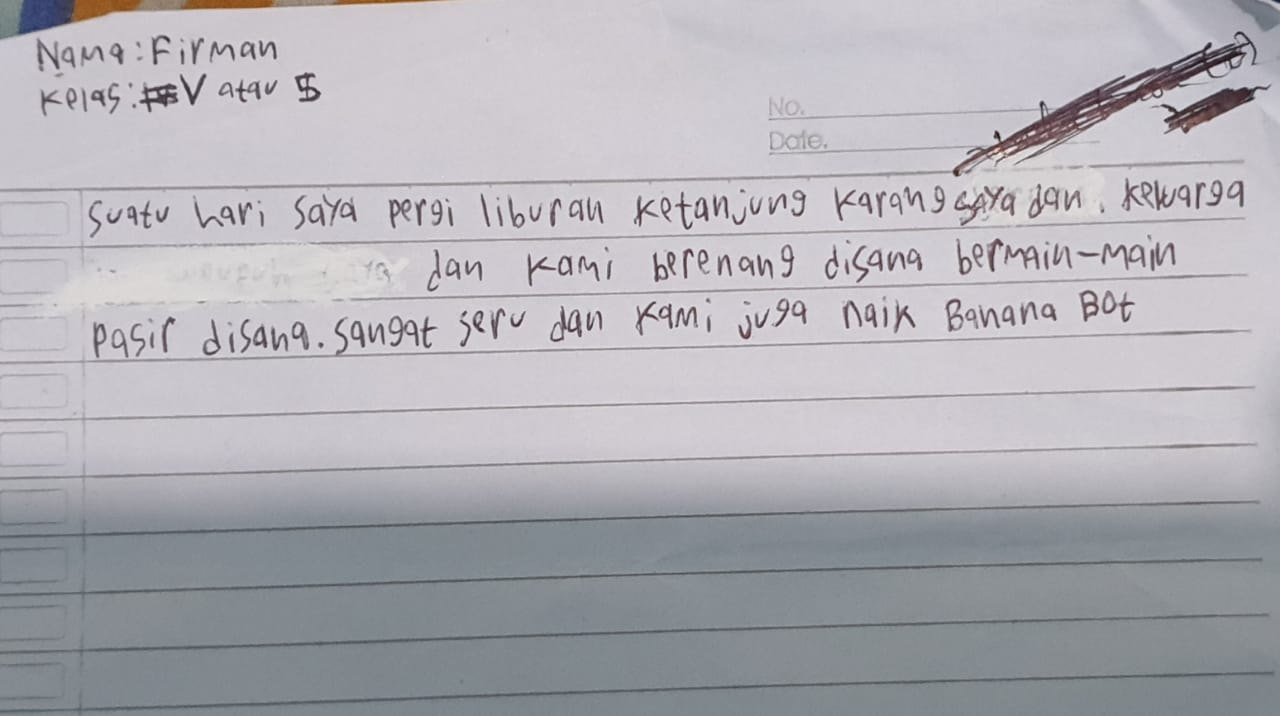 Nama : Firman
Kelas : V atau 5
No.
Date.
Suatu hari saya pergi liburan ketanjung karang saya dan . kewarga
dan kami berenang disana bermain-main
pasir disana. Sangat seru dan kami juga naik Banana Bot